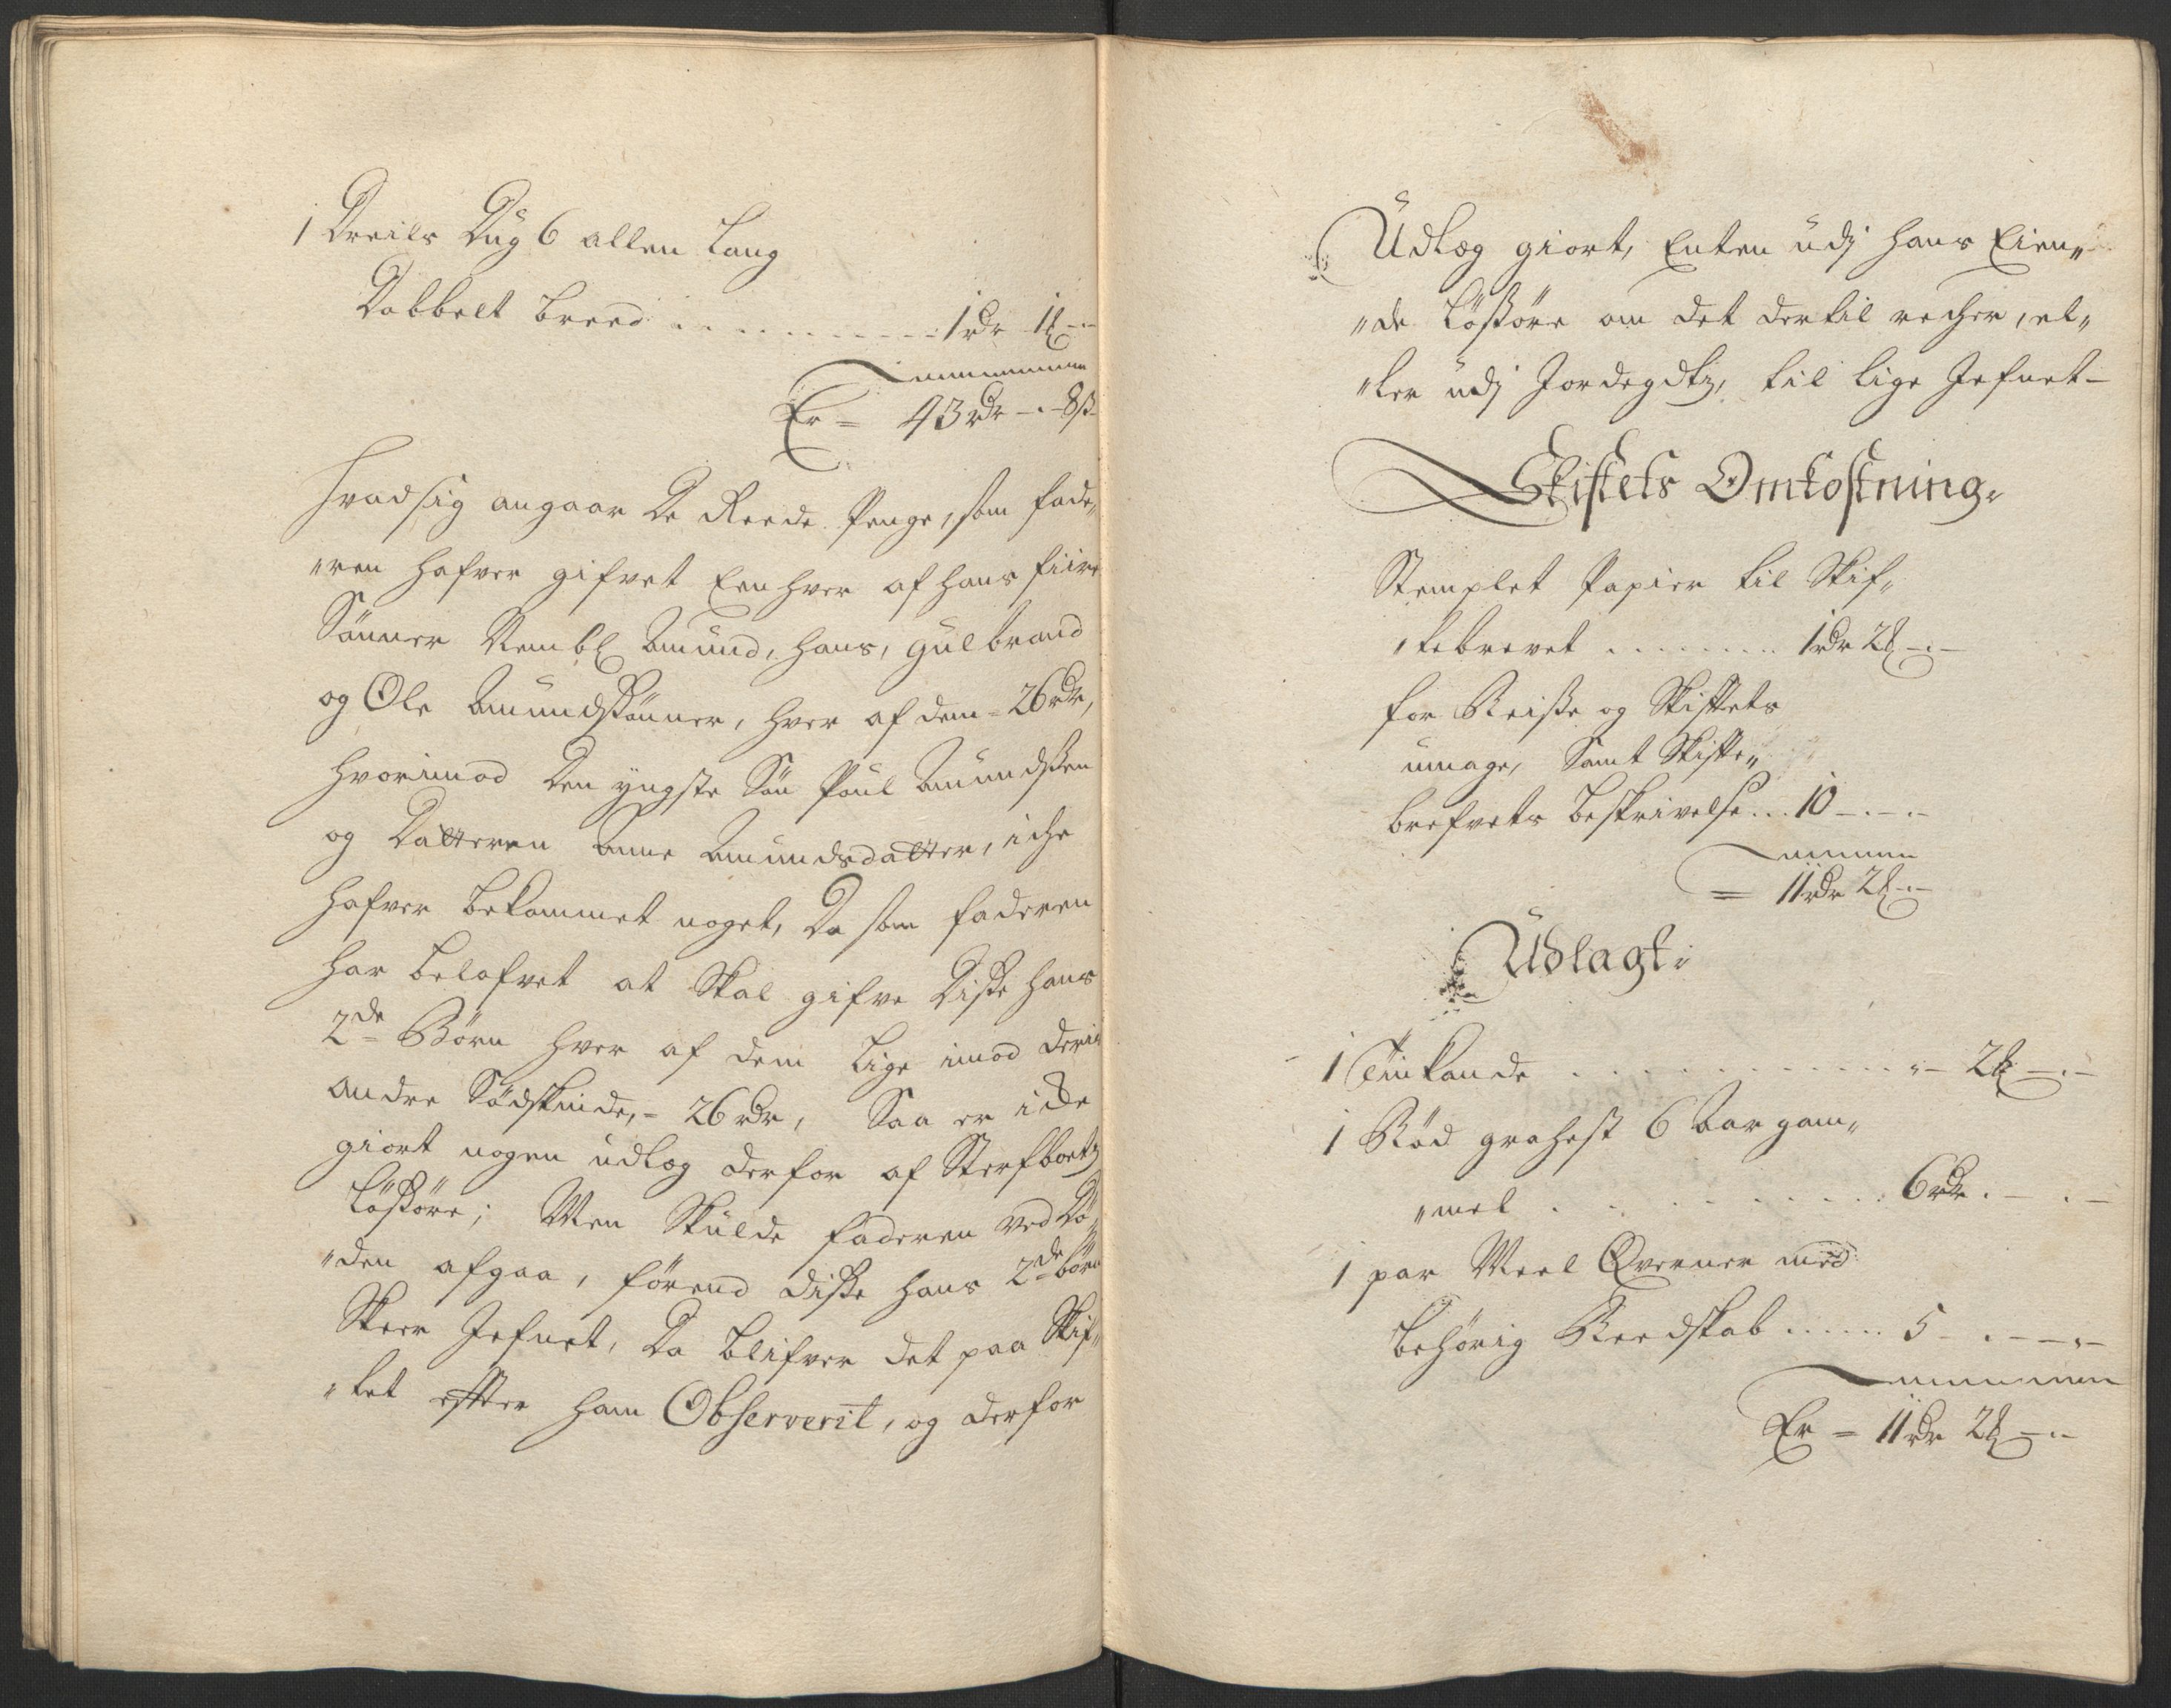 1 Dreils Dug 6 allen lang
Dobbelt breed . . . . . . . . . . 1 rdr 1 ℔ -.-
Er = 43 rdr -.- 8 ß
Hvad sig angaar De Reede Penge, som fade„
„ren hafver gifvet Een hver af hans fiire
Sønner Nembl Amund, Hans, Gulbrand
og Ole Amundssønner, hver af dem = 26 rdr,
hvorimod Den yngste Søn Poul Amundssen
og Datteren Anne Amundsdatter, iche
hafver bekommet noget, Da som faderen
har belofvet at Skal gifve Disse hans
2de Børn hver af dem lige imod deris
andre Sødskinde, = 26 rdr, Saa er iche
giort nogen udlæg derfor af Sterfboetz
Løssøre; Men Skulde faderen ved Dø„
„den afgaa, førend disse hans 2de børn
Skeer Jefnet, Da blifver det paa Skif„
„tet effter ham Observerit, og derfor
Udlæg giort, Enten udj hans Eien„
„de Løssøre om det dertil recher, el„
„ler udj Jordegdtz, til lige Jefnet-
Skiftets Omkostning.
Stemplet Papier til Skif„
„tebrevet . . . . . . . . 1 rdr 2 ℔ -.-
for Reisse og Skifftets
umage, Samt Skiffte„
brefvets beskrivelse... 10 -.-.-
= 11 rdr 2 ℔ -.-
Udlagt:
1 Tinkande . . . . . . . . . . . . - 2 ℔ -.-
1 Rød grahest 6 Aar gam„
„mel . . . . . . . . . 6 rdr. - . -
1 par Meel Qverner med
behørig Reedskab . . . . . . 5 - . - - . -
Er = 11 rdr 2 ℔ -.-